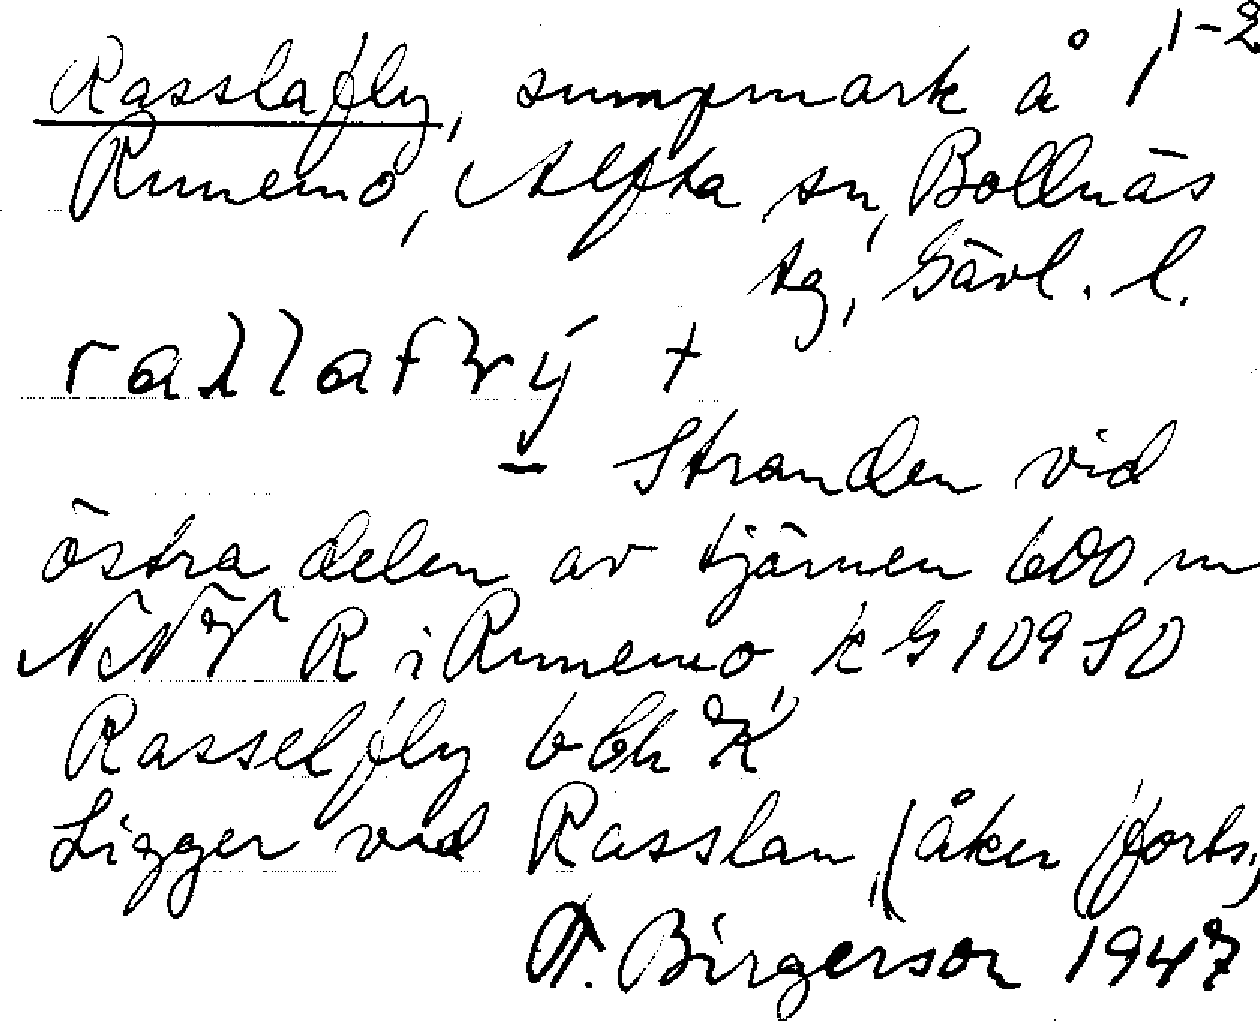 1-2
Rasslafly, sumpmark å 1
Runemo, Alfta sn, Bollnäs
tg, Gävl. l.
+
– Stranden vid
östra delen av tjärnen 600 m
NNV R i Runemo, k G 109 SO
Rasselfly bbh K
Ligger vid Rasslan, (åker forts.)
A. Birgerson 1947